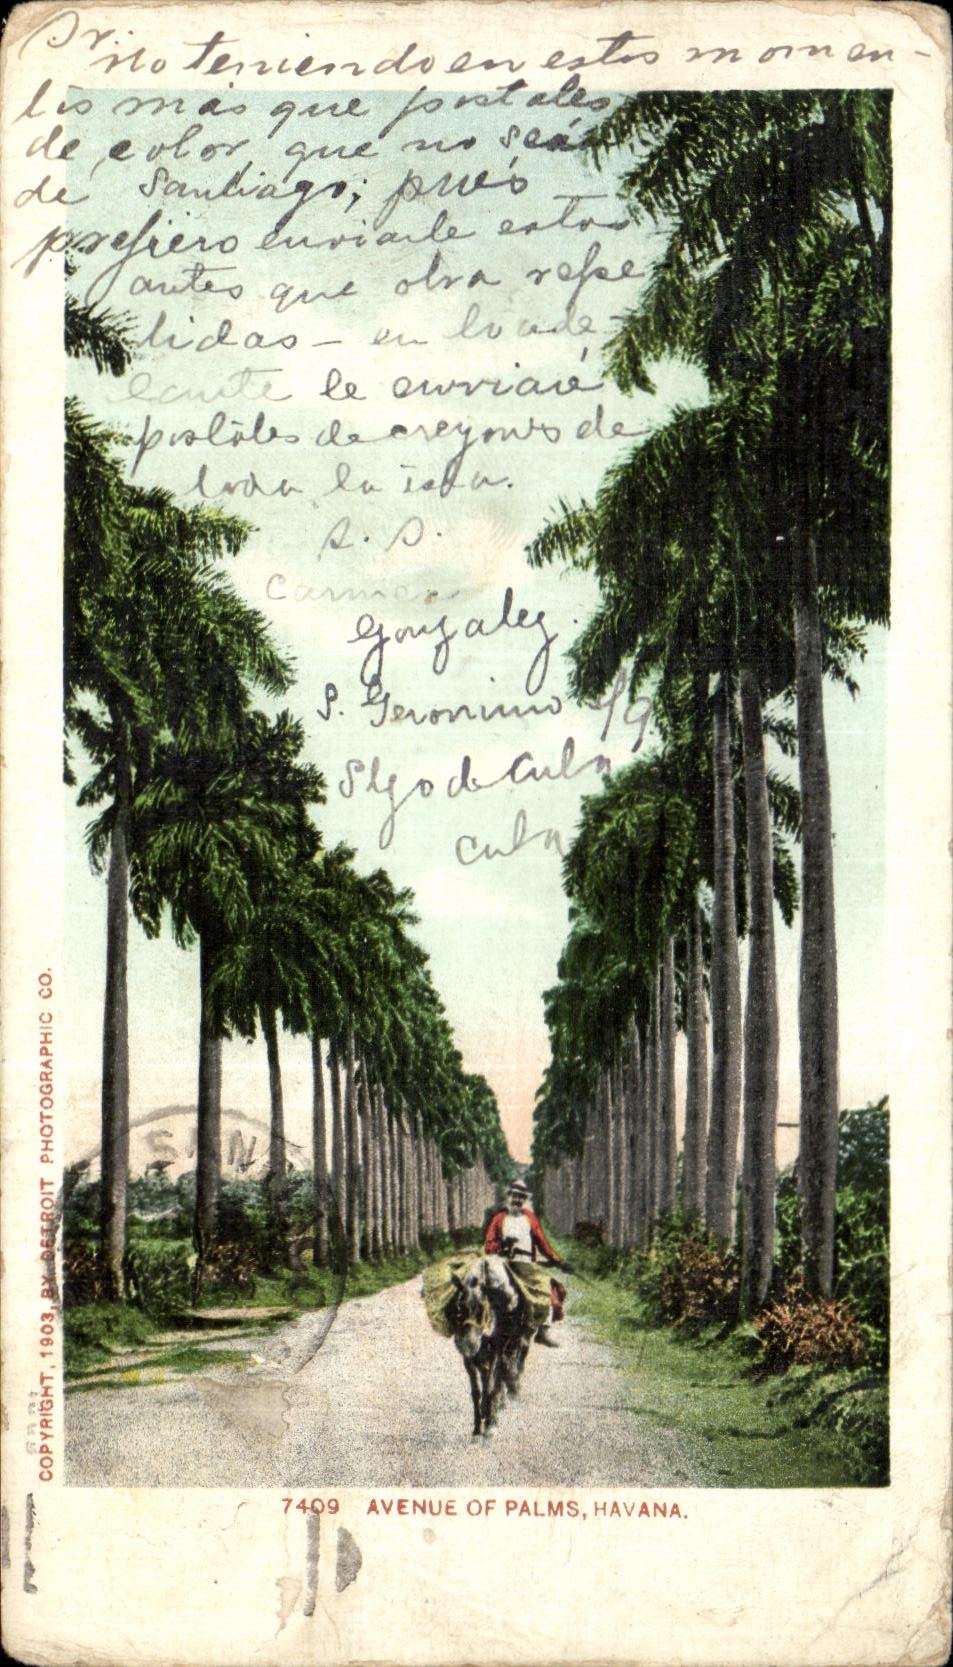 Sr.
No teniendo en estos momen-
tos más que postales
de color, que no seán
de Santiago; pués
prefiero enviarle estas
antes que otra repe
tidas - en lo ade-
lante le enviaré
postáles de creyones de
toda la isla.
S. S.
Carmen
Gonzalez.
S. Geronimo 19
Stgo de Cuba
Cuba
COPYRIGHT, 1903, BY DETROIT PHOTOGRAPHIC CO.
7409 AVENUE OF PALMS, HAVANA.